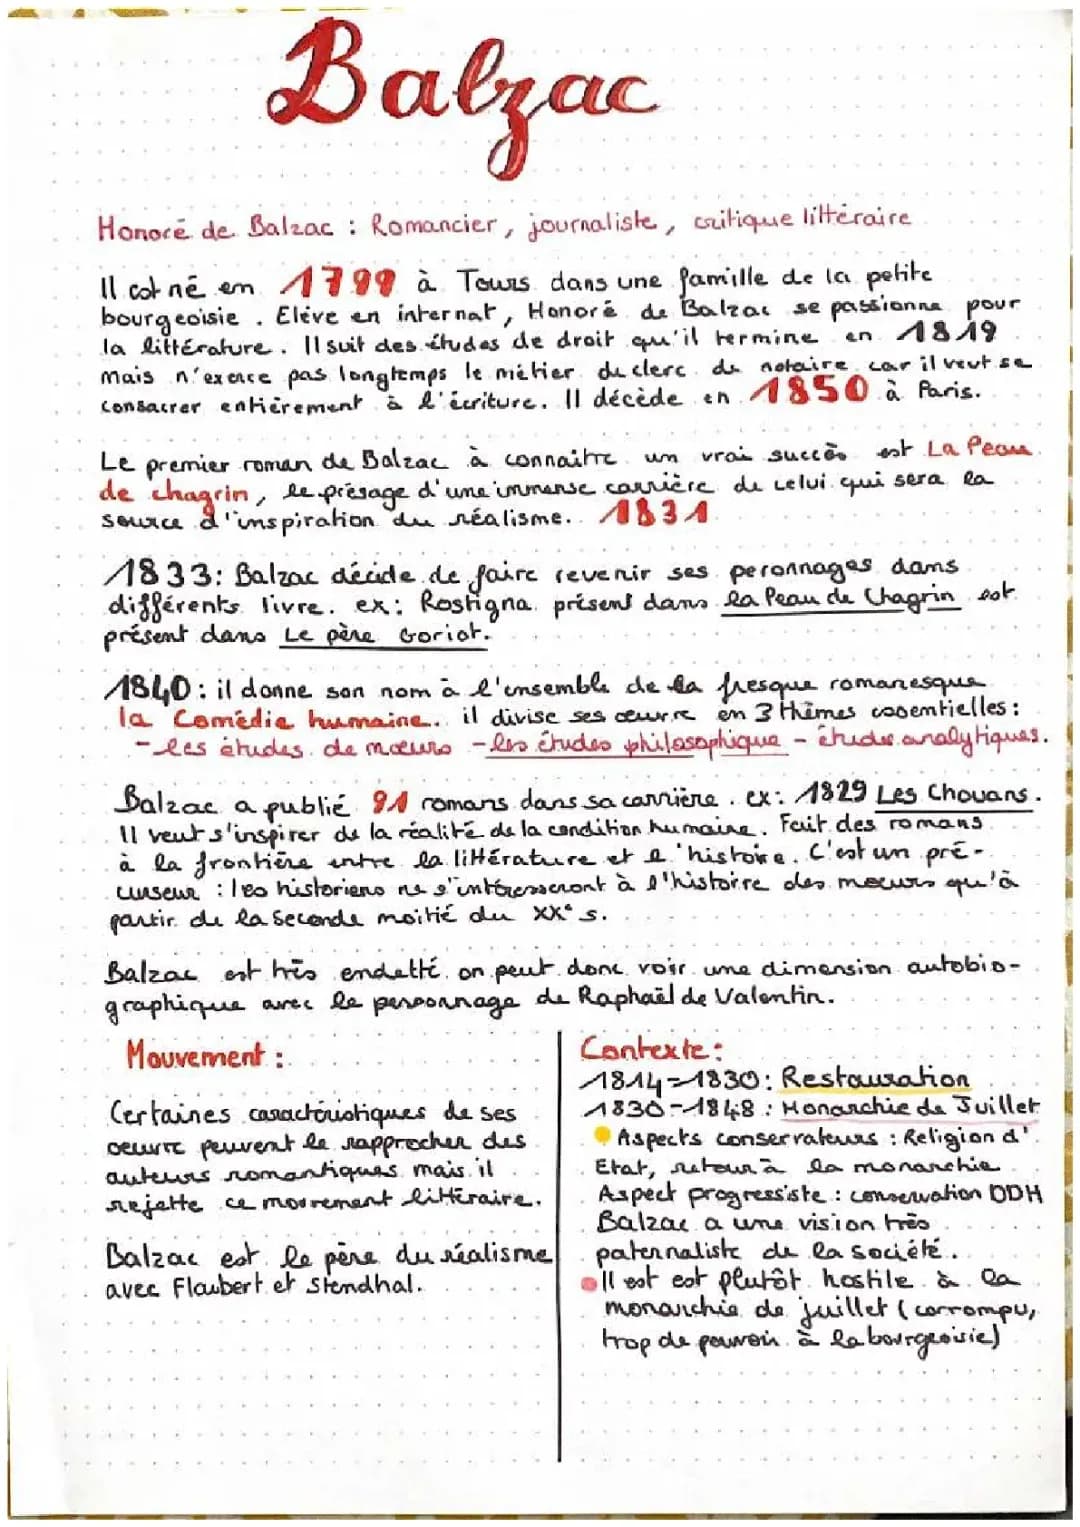 Balzac
Honoré de Balzac : Romancier, journaliste, critique littéraire
Il est né en 1799 à Tours dans une famille de la petite
bourgeoisie. Elève en internat, Honoré de Balzac se passionne pour
la littérature. Il suit des études de droit qu'il termine en 1819
mais n'exerce pas longtemps le métier de clerc de notaire car il veut se
consacrer entièrement à l'écriture. Il décède en 1850 à Paris.
Le premier roman de Balzac à connaître un vrai succès est La Peau
de chagrin, le présage d'une immense carrière de celui qui sera la
source d'inspiration du réalisme. 1831
1833: Balzac décide de faire revenir ses peronnages dans
différents livre. ex: Rostigna présent dans la Peau de Chagrin est
présent dans Le père Goriot.
1840: il donne son nom à l'ensemble de la fresque romanesque
la Comédie humaine. il divise ses œuvre en 3 thèmes essentielles:
- les études de mœurs - les études philosophique - études analytiques.
Balzac a publié 91 romans dans sa carrière. ex: 1829 Les Chouans.
Il veut s'inspirer de la réalité de la condition humaine. Fait des romans
à la frontière entre la littérature et l'histoire. C'est un pré-
curseur : les historiens ne s'intéresseront à l'histoire des mœurs qu'à
partir de la seconde moitié du XX° s.
Balzac est très endetté on peut donc voir une dimension autobio-
graphique avec le personnage de Raphaël de Valentin.
Mouvement :
Certaines caractéristiques de ses
oeuvre peuvent le rapprocher des
auteurs romantiques mais il
rejette ce mouvement littéraire.
Balzac est le père du réalisme
avec Flaubert et Stendhal.
Contexte:
1814-1830: Restauration
1830-1848: Monarchie de Juillet
Aspects conservateurs : Religion d'
Etat, retour à la monarchie
Aspect progressiste : conservation DDH
Balzac a une vision très
paternaliste de la société.
Il est est plutôt hostile à la
monarchie de juillet (corrompu,
trop de pouvoir à la bourgeoisie)